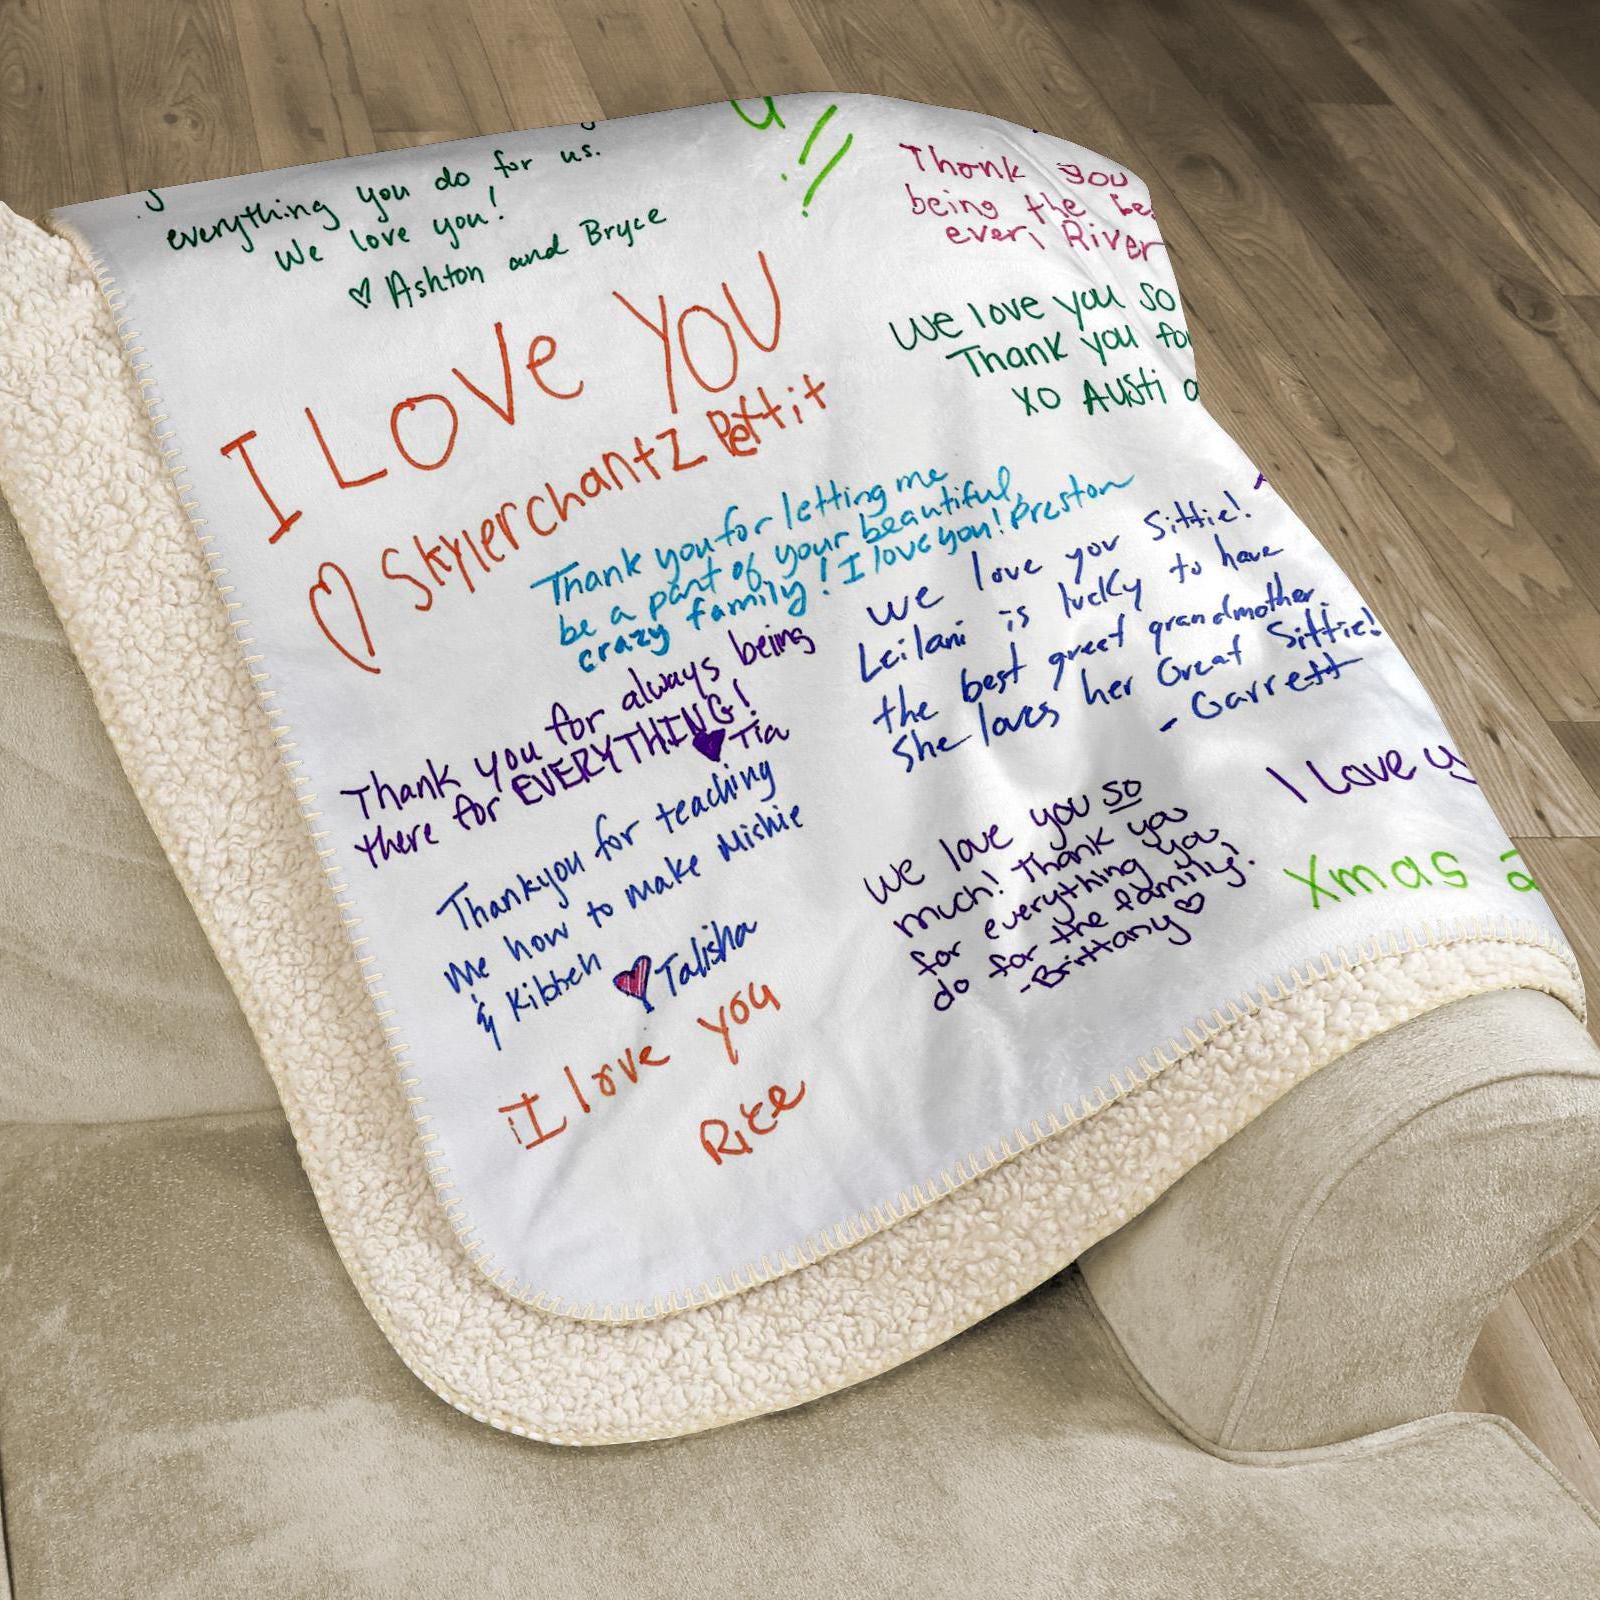 everything you do for us.
We love you!
♡ Ashton and Bryce
I LOVe YOU
♡ Skylerchantz Pettit
Thank you for letting me
be a part of your beautiful,
crazy family! I love you! Preston
Thank you for always being
there for EVERYTHING!
♥ Tia
Thankyou for teaching
me how to make Mishie
& Kibbeh ♥ Talisha
I love you
Rice
Thank you
being the
ever, River
We love you so
Thank you
XO Austi
We love you Sittie!
Leilani is lucky to have
the best great grandmother
She loves her Great Sittie!
- Garrett
We love you so
much! Thank you
for everything you
do for the family!
-Brittany ♡
I Love
Xmas